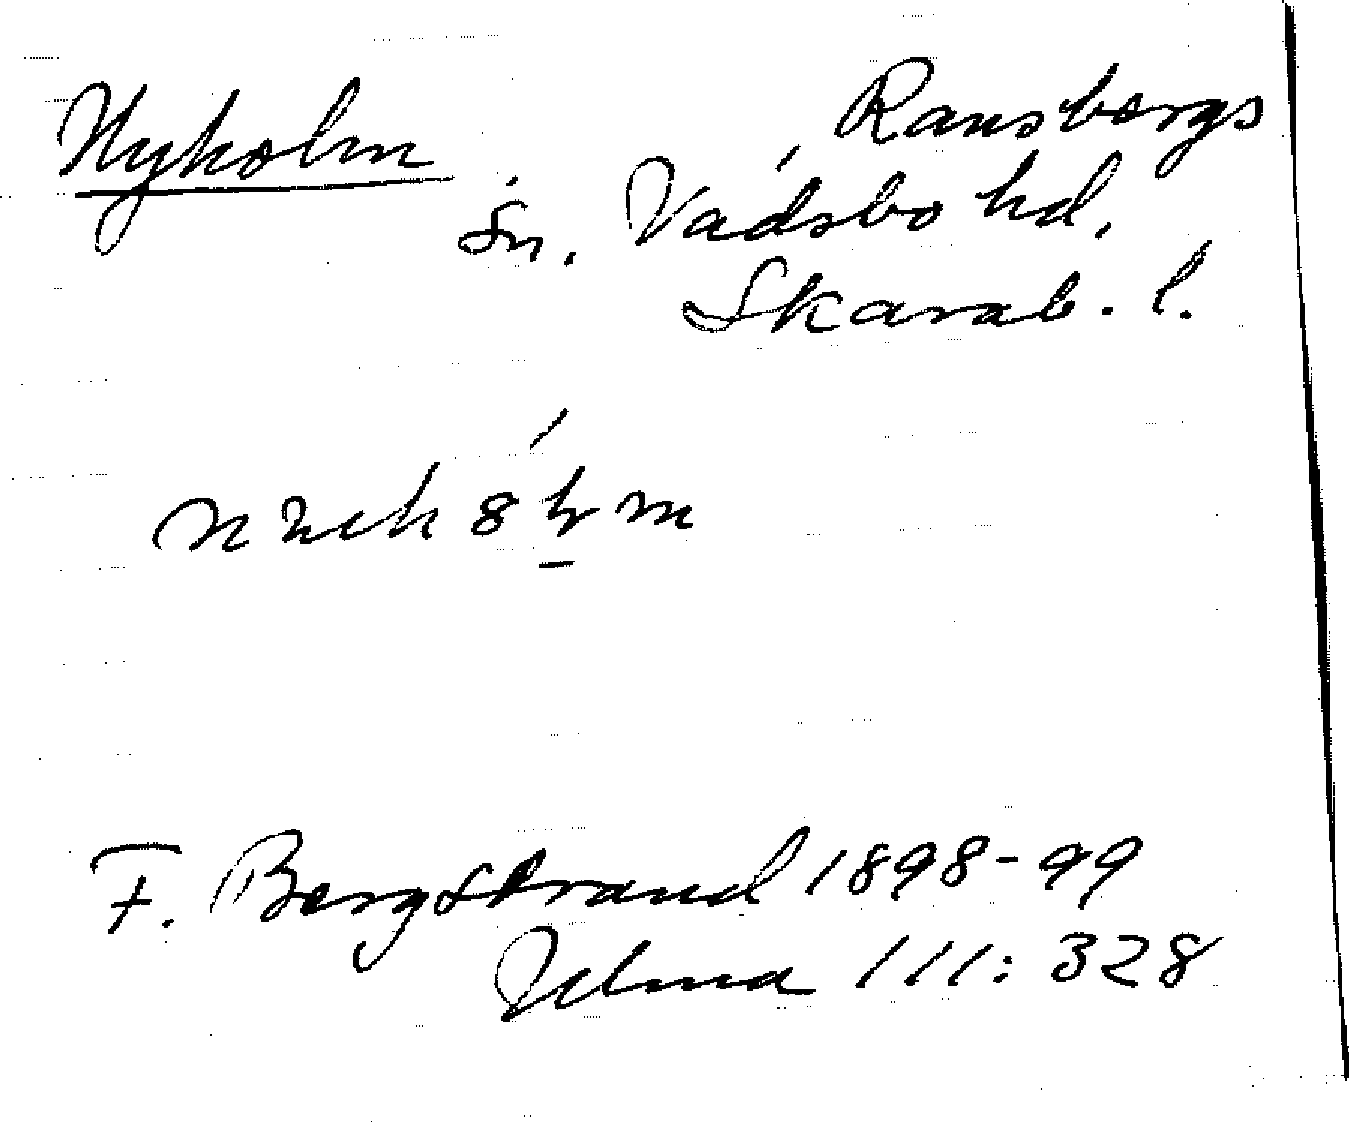 Nyholm
Ransbergs
sn. Vadsbo hd.
Skarab. l.
F. Bergstrand 1898-99
111:328